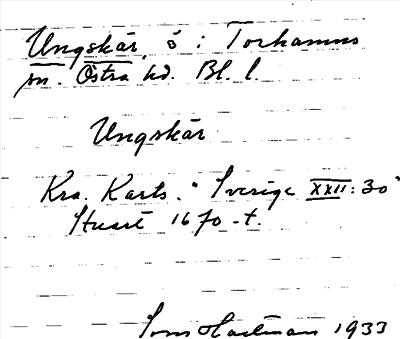 Ungskär, ö i Torhamns
sn. Östra hd. Bl. l.
Ungskär
Kra. Karts. "Sverige XXII:30"
Stuart 1670-t.
Tom Hartman 1933